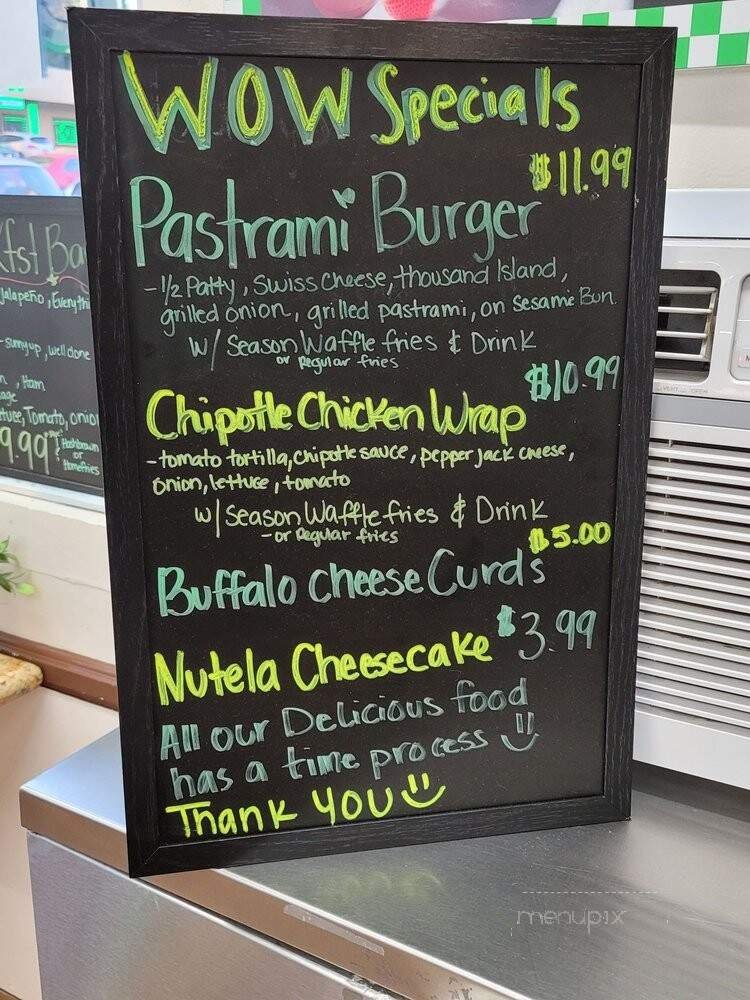 WOW Specials
$11.99
Pastrami Burger
-1/2 Patty, Swiss Cheese, thousand Island,
grilled onion, grilled pastrami, on Sesame Bun.
w/ Season Waffle fries & Drink
or Regular fries
$10.99
Chipotle Chicken Wrap
-tomato tortilla, chipotle sauce, pepper jack cheese,
onion, lettuce, tomato
w/ Season Waffle fries & Drink
-or Regular fries
$5.00
Buffalo Cheese Curds
Nutela Cheesecake $3.99
All our Delicious food
has a time process
Thank YOU
kfst Ba
Jalapeño, Everythi
-sunnyup, well done
, Ham
tuce, Tomato, onio
9.99
Hashbrown
or
Homefries
menupix